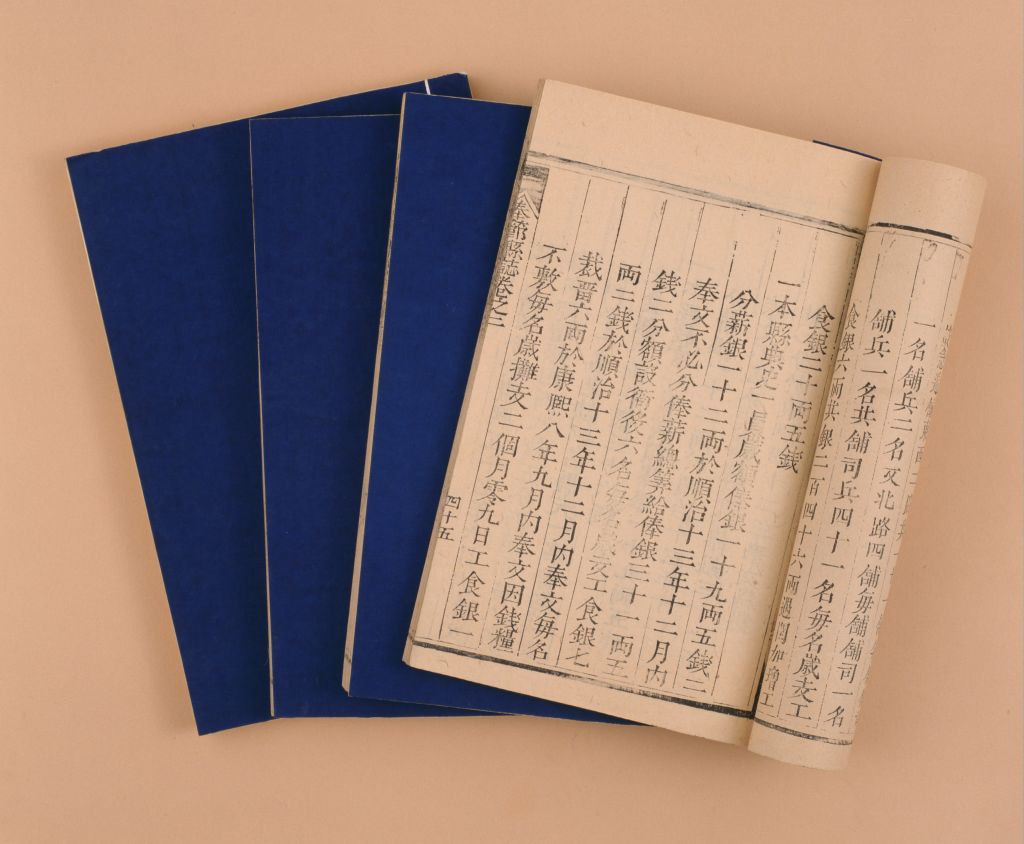 一名舖兵二名又北路四舖每舖舖司一名
舖兵一名共舖司兵四十一名每名歲支工
食銀六兩共銀二百四十六兩遇閏加增工
食銀二十両五錢
一本縣典史一員歲額俸銀一十九両五錢二
分薪銀一十二両於順治十三年十二月內
奉文不必分俸薪總筭給俸銀三十一両五
錢二分額設衙役六名每名歲支工食銀七
両二錢於順治十三年十二月內奉文每名
裁畱六両於康熙八年九月內奉文因錢糧
不敷每名歲攤支二個月零九日工食銀一
奉節縣誌卷之二
四十五